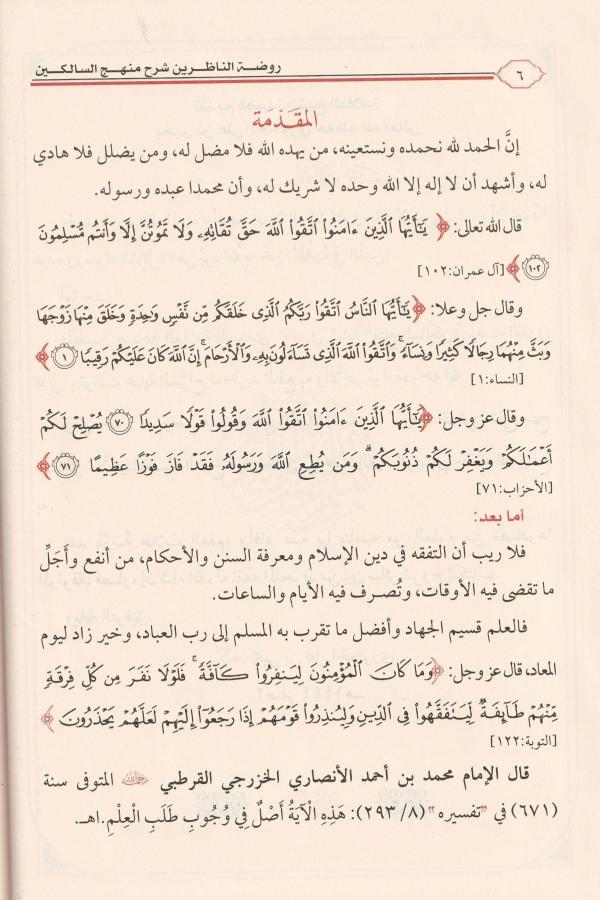 ٦
روضة الناظرين شرح منهج السالكين
المقَدِّمَة
إنَّ الحمد لله نحمده ونستعينه، من يهده الله فلا مضل له، ومن يضلل فلا هادي
له، وأشهد أن لا إله إلا الله وحده لا شريك له، وأن محمدا عبده ورسوله.
قال الله تعالى: ﴿يَٰٓأَيُّهَا ٱلَّذِينَ ءَامَنُوا۟ ٱتَّقُوا۟ ٱللَّهَ حَقَّ تُقَاتِهِۦ وَلَا تَمُوتُنَّ إِلَّا وَأَنتُم مُّسْلِمُونَ
١٠٢﴾ [آل عمران:١٠٢]
وقال جل وعلا: ﴿يَٰٓأَيُّهَا ٱلنَّاسُ ٱتَّقُوا۟ رَبَّكُمُ ٱلَّذِى خَلَقَكُم مِّن نَّفْسٍ وَٰحِدَةٍ وَخَلَقَ مِنْهَا زَوْجَهَا
وَبَثَّ مِنْهُمَا رِجَالًا كَثِيرًا وَنِسَآءً ۚ وَٱتَّقُوا۟ ٱللَّهَ ٱلَّذِى تَسَآءَلُونَ بِهِۦ وَٱلْأَرْحَامَ ۚ إِنَّ ٱللَّهَ كَانَ عَلَيْكُمْ رَقِيبًا ١﴾
[النساء:١]
وقال عز وجل: ﴿يَٰٓأَيُّهَا ٱلَّذِينَ ءَامَنُوا۟ ٱتَّقُوا۟ ٱللَّهَ وَقُولُوا۟ قَوْلًا سَدِيدًا ٧٠ يُصْلِحْ لَكُمْ
أَعْمَٰلَكُمْ وَيَغْفِرْ لَكُمْ ذُنُوبَكُمْ ۗ وَمَن يُطِعِ ٱللَّهَ وَرَسُولَهُۥ فَقَدْ فَازَ فَوْزًا عَظِيمًا ٧١﴾
[الأحزاب:٧١]
أما بعد:
فلا ريب أن التفقه في دين الإسلام ومعرفة السنن والأحكام، من أنفع وأَجَلِّ
ما تقضى فيه الأوقات، وتُصرف فيه الأيام والساعات.
فالعلم قسيم الجهاد وأفضل ما تقرب به المسلم إلى رب العباد، وخير زاد ليوم
المعاد، قال عز وجل: ﴿وَمَا كَانَ ٱلْمُؤْمِنُونَ لِيَنفِرُوا۟ كَآفَّةً ۚ فَلَوْلَا نَفَرَ مِن كُلِّ فِرْقَةٍ
مِّنْهُمْ طَآئِفَةٌ لِّيَتَفَقَّهُوا۟ فِى ٱلدِّينِ وَلِيُنذِرُوا۟ قَوْمَهُمْ إِذَا رَجَعُوٓا۟ إِلَيْهِمْ لَعَلَّهُمْ يَحْذَرُونَ﴾
[التوبة:١٢٢]
قال الإمام محمد بن أحمد الأنصاري الخزرجي القرطبي رحمه الله المتوفى سنة
(٦٧١) في "تفسيره" (٨/ ٢٩٣): هَذِهِ الْآيَةُ أَصْلٌ فِي وُجُوبِ طَلَبِ الْعِلْمِ.اهـ.